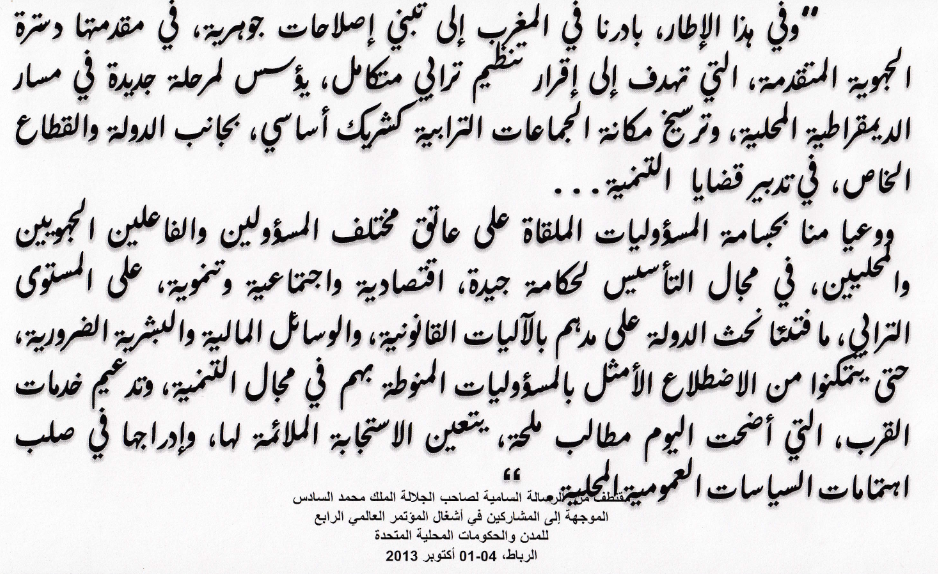 “وفي هذا الإطار، بادرنا في المغرب إلى تبني إصلاحات جوهرية، في مقدمتها دسترة
الجهوية المتقدمة، التي تهدف إلى إقرار تنظيم ترابي متكامل، يؤسس لمرحلة جديدة في مسار
الديمقراطية المحلية، وترسيخ مكانة الجماعات الترابية كشريك أساسي، بجانب الدولة والقطاع
الخاص، في تدبير قضايا التنمية...
ووعيا منا بجسامة المسؤوليات الملقاة على عاتق مختلف المسؤولين والفاعلين الجهويين
والمحليين، في مجال التأسيس لحكامة جيدة، اقتصادية واجتماعية وتنموية، على المستوى
الترابي، ما فتئنا نحث الدولة على مدهم بالآليات القانونية، والوسائل المالية والبشرية الضرورية،
حتى يتمكنوا من الاضطلاع الأمثل بالمسؤوليات المنوطة بهم في مجال التنمية، وتدعيم خدمات
القرب، التي أضحت اليوم مطالب ملحة، يتعين الاستجابة الملائمة لها، وإدراجها في صلب
اهتمامات السياسات العمومية المحلية. “
مقتطف من الرسالة السامية لصاحب الجلالة الملك محمد السادس
الموجهة إلى المشاركين في أشغال المؤتمر العالمي الرابع
للمدن والحكومات المحلية المتحدة
الرباط، 04-01 أكتوبر 2013